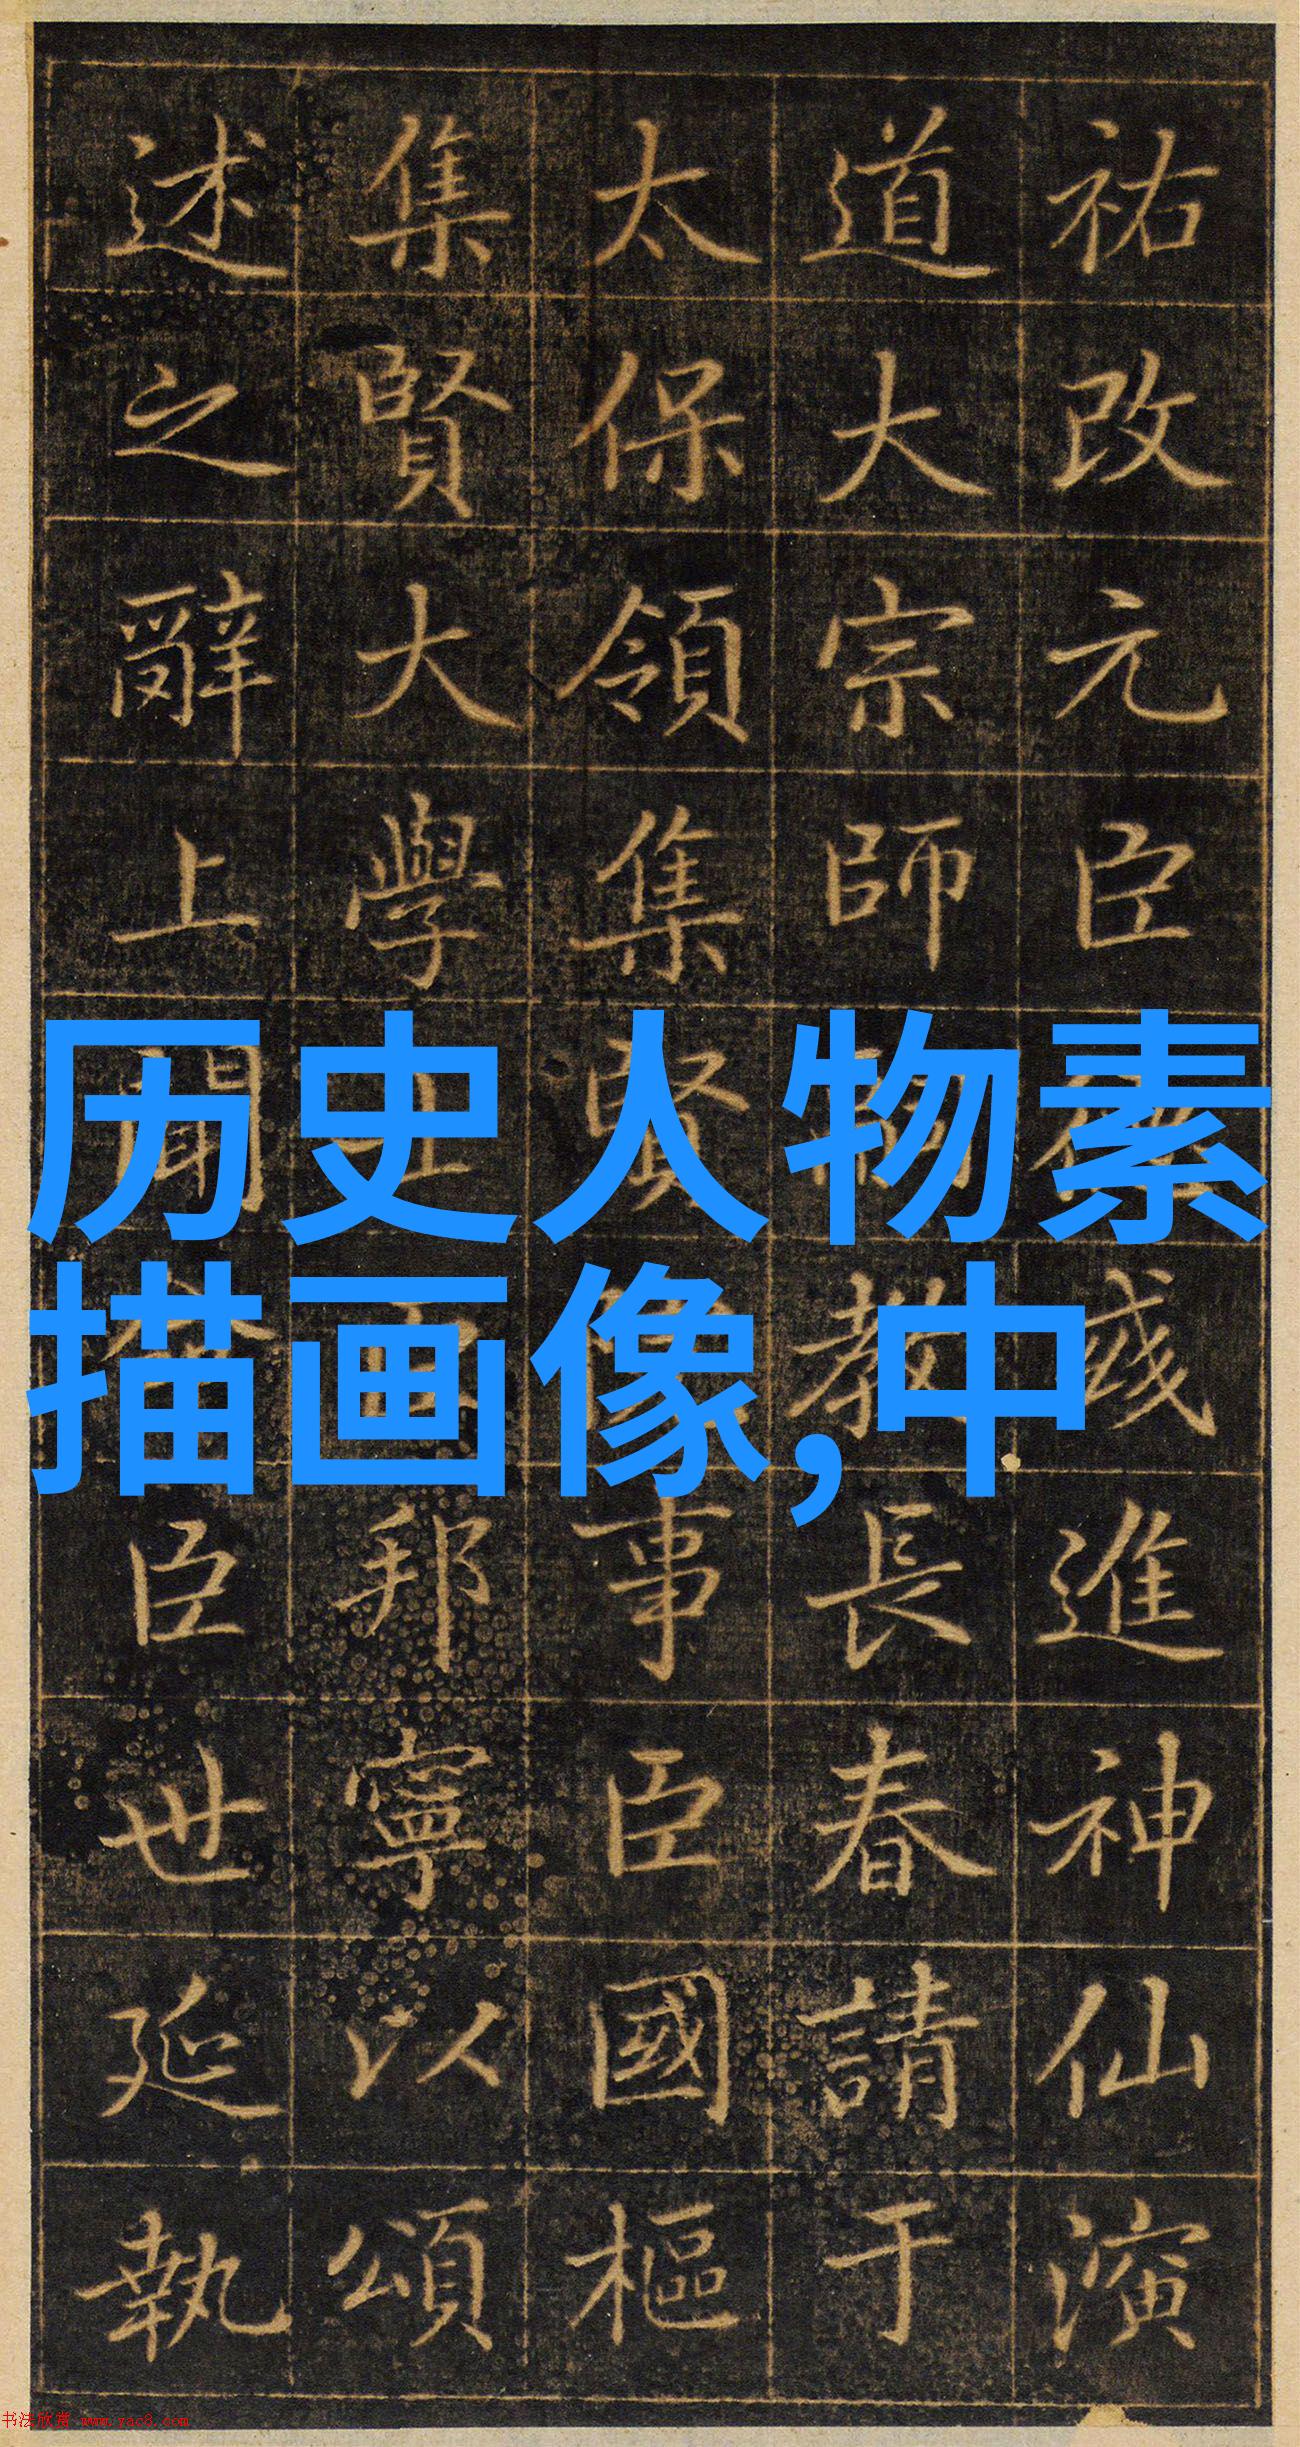 祐改元臣或進神仙演
道大宗師教長春請于
太保領集賢事臣國樞
集賢大學士邦寧以頌
述之辭上聞臣世延執
历史人物素
描画像,中
书法欣赏 www.yac8.com